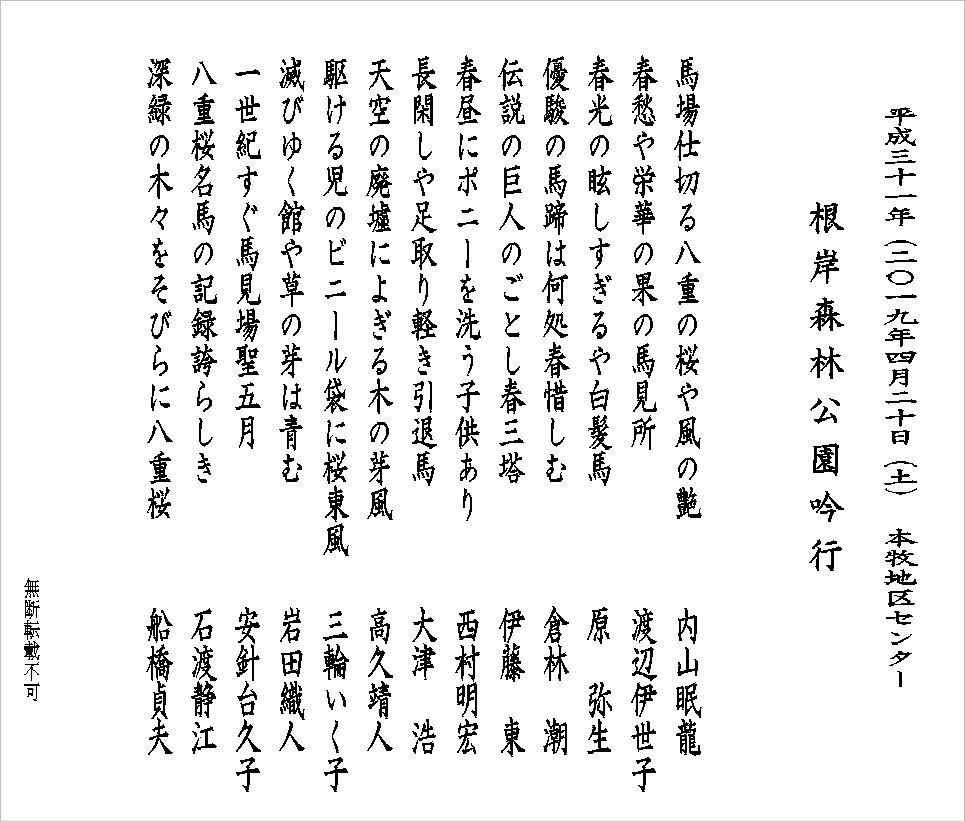 平成三十一年（二〇一九年四月二十日（土）　本牧地区センター
根岸森林公園吟行
馬場仕切る八重の桜や風の艶　内山眠龍
春愁や栄華の果の馬見所　渡辺伊世子
春光の眩しすぎるや白髪馬　原　弥生
優駿の馬蹄は何処春惜しむ　倉林　潮
伝説の巨人のごとし春三塔　伊藤　東
春昼にポニーを洗う子供あり　西村明宏
長閑しや足取り軽き引退馬　大津　浩
天空の廃墟によぎる木の芽風　高久靖人
駆ける児のビニール袋に桜東風　三輪いく子
滅びゆく館や草の芽は青む　岩田織人
一世紀すぐ馬見場聖五月　安針台久子
八重桜名馬の記録誇らしき　石渡静江
深緑の木々をそびらに八重桜　船橋貞夫
無断転載不可